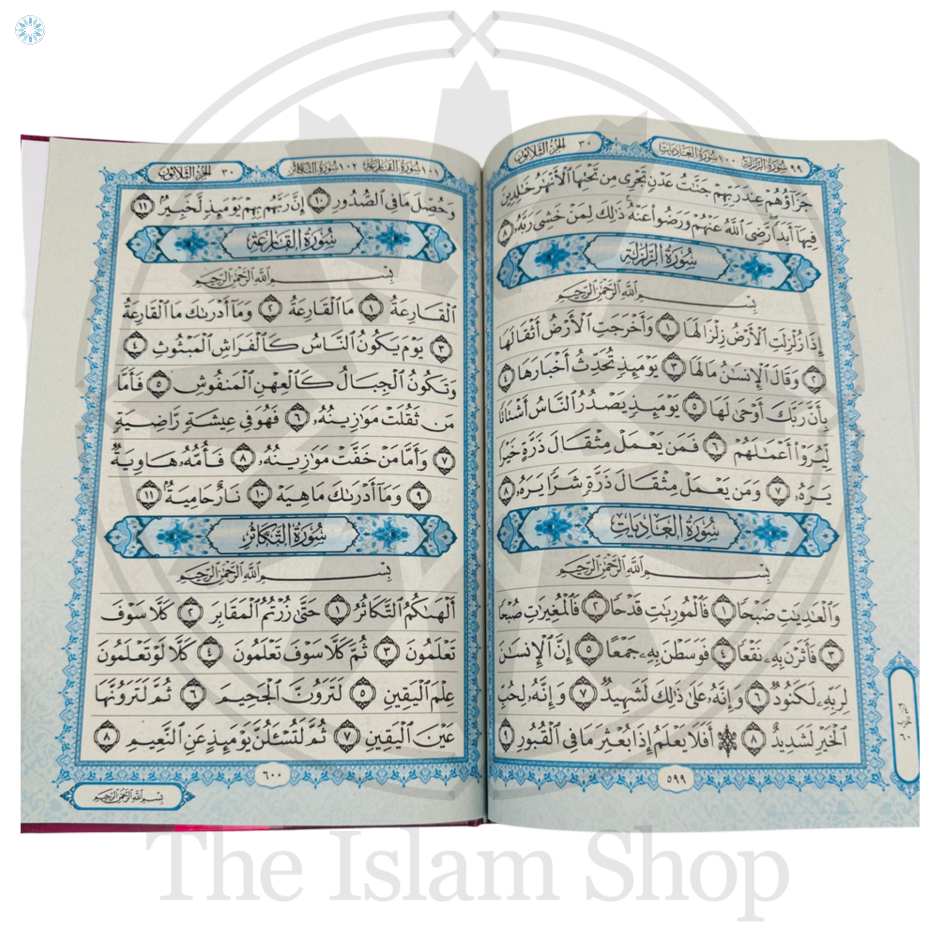 ٩٩ سُورَةُ الزَّلْزَلَةِ ١٠٠ سُورَةُ العَادِيَاتِ
٣٠ الجُزْءُ الثَّلَاثُونَ
جَزَآؤُهُمْ عِندَ رَبِّهِمْ جَنَّـٰتُ عَدْنٍ تَجْرِى مِن تَحْتِهَا ٱلْأَنْهَـٰرُ خَـٰلِدِينَ
فِيهَآ أَبَدًا رَّضِىَ ٱللَّهُ عَنْهُمْ وَرَضُوا۟ عَنْهُ ذَٰلِكَ لِمَنْ خَشِىَ رَبَّهُۥ ٨
سُورَةُ الزَّلْزَلَةِ
بِسْمِ ٱللَّهِ ٱلرَّحْمَـٰنِ ٱلرَّحِيمِ
إِذَا زُلْزِلَتِ ٱلْأَرْضُ زِلْزَالَهَا ١ وَأَخْرَجَتِ ٱلْأَرْضُ أَثْقَالَهَا
٢ وَقَالَ ٱلْإِنسَـٰنُ مَا لَهَا ٣ يَوْمَئِذٍ تُحَدِّثُ أَخْبَارَهَا ٤
بِأَنَّ رَبَّكَ أَوْحَىٰ لَهَا ٥ يَوْمَئِذٍ يَصْدُرُ ٱلنَّاسُ أَشْتَاتًا
لِّيُرَوْا۟ أَعْمَـٰلَهُمْ ٦ فَمَن يَعْمَلْ مِثْقَالَ ذَرَّةٍ خَيْرًا
يَرَهُۥ ٧ وَمَن يَعْمَلْ مِثْقَالَ ذَرَّةٍ شَرًّا يَرَهُۥ ٨
سُورَةُ العَادِيَاتِ
بِسْمِ ٱللَّهِ ٱلرَّحْمَـٰنِ ٱلرَّحِيمِ
وَٱلْعَـٰدِيَـٰتِ ضَبْحًا ١ فَٱلْمُورِيَـٰتِ قَدْحًا ٢ فَٱلْمُغِيرَٰتِ صُبْحًا
٣ فَأَثَرْنَ بِهِۦ نَقْعًا ٤ فَوَسَطْنَ بِهِۦ جَمْعًا ٥ إِنَّ ٱلْإِنسَـٰنَ
لِرَبِّهِۦ لَكَنُودٌ ٦ وَإِنَّهُۥ عَلَىٰ ذَٰلِكَ لَشَهِيدٌ ٧ وَإِنَّهُۥ لِحُبِّ
ٱلْخَيْرِ لَشَدِيدٌ ٨ ۞ أَفَلَا يَعْلَمُ إِذَا بُعْثِرَ مَا فِى ٱلْقُبُورِ ٩
٥٩٩
٦٠
١٠١ سُورَةُ القَارِعَةِ ١٠٢ سُورَةُ التَّكَاثُرِ
٣٠ الجُزْءُ الثَّلَاثُونَ
وَحُصِّلَ مَا فِى ٱلصُّدُورِ ١٠ إِنَّ رَبَّهُم بِهِمْ يَوْمَئِذٍ لَّخَبِيرٌۢ ١١
سُورَةُ القَارِعَةِ
بِسْمِ ٱللَّهِ ٱلرَّحْمَـٰنِ ٱلرَّحِيمِ
ٱلْقَارِعَةُ ١ مَا ٱلْقَارِعَةُ ٢ وَمَآ أَدْرَىٰكَ مَا ٱلْقَارِعَةُ
٣ يَوْمَ يَكُونُ ٱلنَّاسُ كَٱلْفَرَاشِ ٱلْمَبْثُوثِ ٤
وَتَكُونُ ٱلْجِبَالُ كَٱلْعِهْنِ ٱلْمَنفُوشِ ٥ فَأَمَّا
مَن ثَقُلَتْ مَوَٰزِينُهُۥ ٦ فَهُوَ فِى عِيشَةٍ رَّاضِيَةٍ
٧ وَأَمَّا مَنْ خَفَّتْ مَوَٰزِينُهُۥ ٨ فَأُمُّهُۥ هَاوِيَةٌ
٩ وَمَآ أَدْرَىٰكَ مَا هِيَهْ ١٠ نَارٌ حَامِيَةٌۢ ١١
سُورَةُ التَّكَاثُرِ
بِسْمِ ٱللَّهِ ٱلرَّحْمَـٰنِ ٱلرَّحِيمِ
أَلْهَىٰكُمُ ٱلتَّكَاثُرُ ١ حَتَّىٰ زُرْتُمُ ٱلْمَقَابِرَ ٢ كَلَّا سَوْفَ
تَعْلَمُونَ ٣ ثُمَّ كَلَّا سَوْفَ تَعْلَمُونَ ٤ كَلَّا لَوْ تَعْلَمُونَ
عِلْمَ ٱلْيَقِينِ ٥ لَتَرَوُنَّ ٱلْجَحِيمَ ٦ ثُمَّ لَتَرَوُنَّهَا
عَيْنَ ٱلْيَقِينِ ٧ ثُمَّ لَتُسْـَٔلُنَّ يَوْمَئِذٍ عَنِ ٱلنَّعِيمِ ٨
٦٠٠
بِسْمِ ٱللَّهِ ٱلرَّحْمَـٰنِ ٱلرَّحِيمِ
The Islam Shop